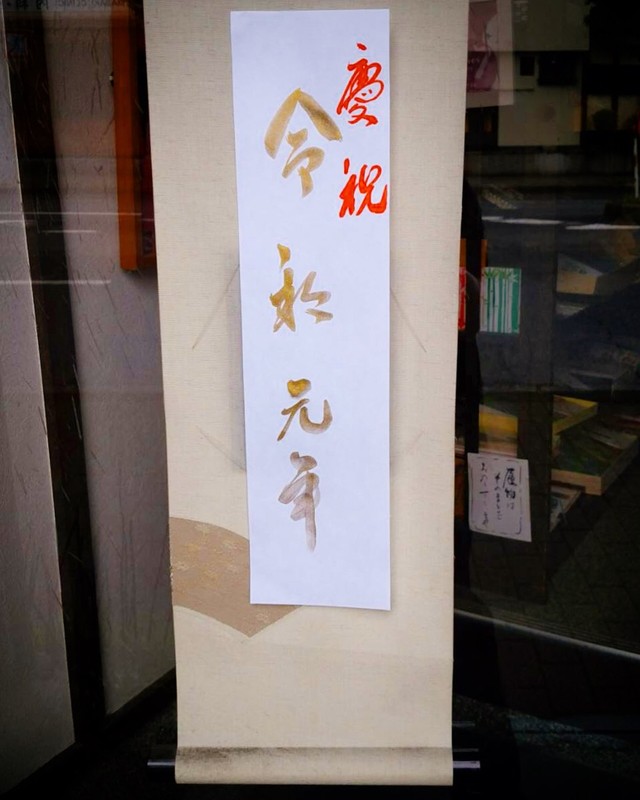 慶祝
令和元年